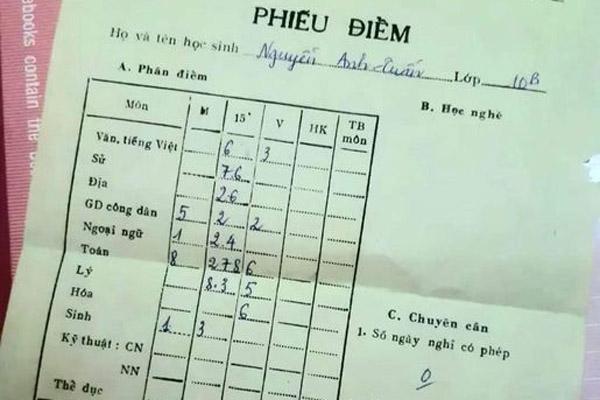 abooks contain the
PHIẾU ĐIỂM
Họ và tên học sinh Nguyễn Anh Tuấn Lớp 10B
A. Phân điểm
B. Học nghề
Môn M 15' V HK TB môn
Văn, tiếng Việt 6 3
Sử 7 6
Địa 2 6
GD công dân 5 2 2
Ngoại ngữ 1 2.4
Toán 8 2 7 8 6
Lý 8.3 5
Hóa 6
Sinh 1 3
Kỹ thuật : CN
NN
Thể dục
C. Chuyên cần
1. Số ngày nghỉ có phép
0